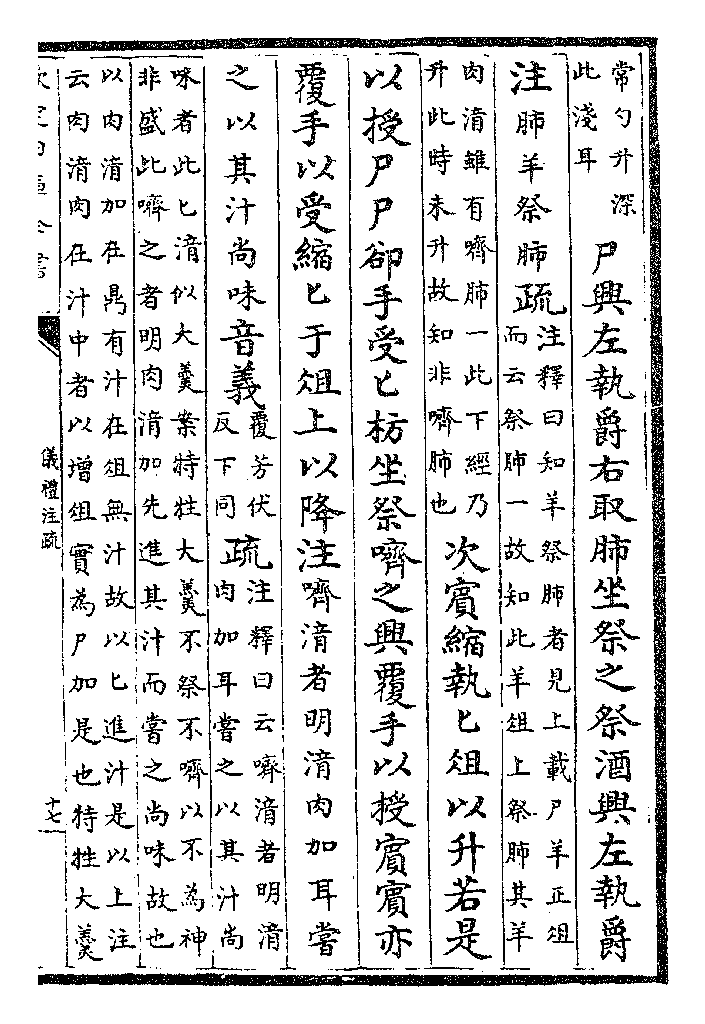 常勺升深
此淺耳
尸興左執爵右取肺坐祭之祭酒興左執爵
注肺羊祭肺疏
注釋曰知羊祭肺者見上載尸羊正俎
而云祭肺一故知此羊俎上祭肺其羊
肉湆雖有嚌肺一此下經乃
升此時未升故知非嚌肺也
次賓縮執匕俎以升若是
以授尸尸卻手受匕枋坐祭嚌之興覆手以授賓賓亦
覆手以受縮匕于俎上以降注嚌湆者明湆肉加耳嘗
之以其汁尚味音義
覆芳伏
反下同
疏
注釋曰云嚌湆者明湆
肉加耳嘗之以其汁尚
味者此匕湆似大羹案特牲大羹不祭不嚌以不為神
非盛此嚌之者明肉湆加先進其汁而嘗之尚味故也
以肉湆加在鼎有汁在俎無汁故以匕進汁是以上注
云肉湆肉在汁中者以增俎實為尸加是也特牲大羹
儀禮注疏
十七